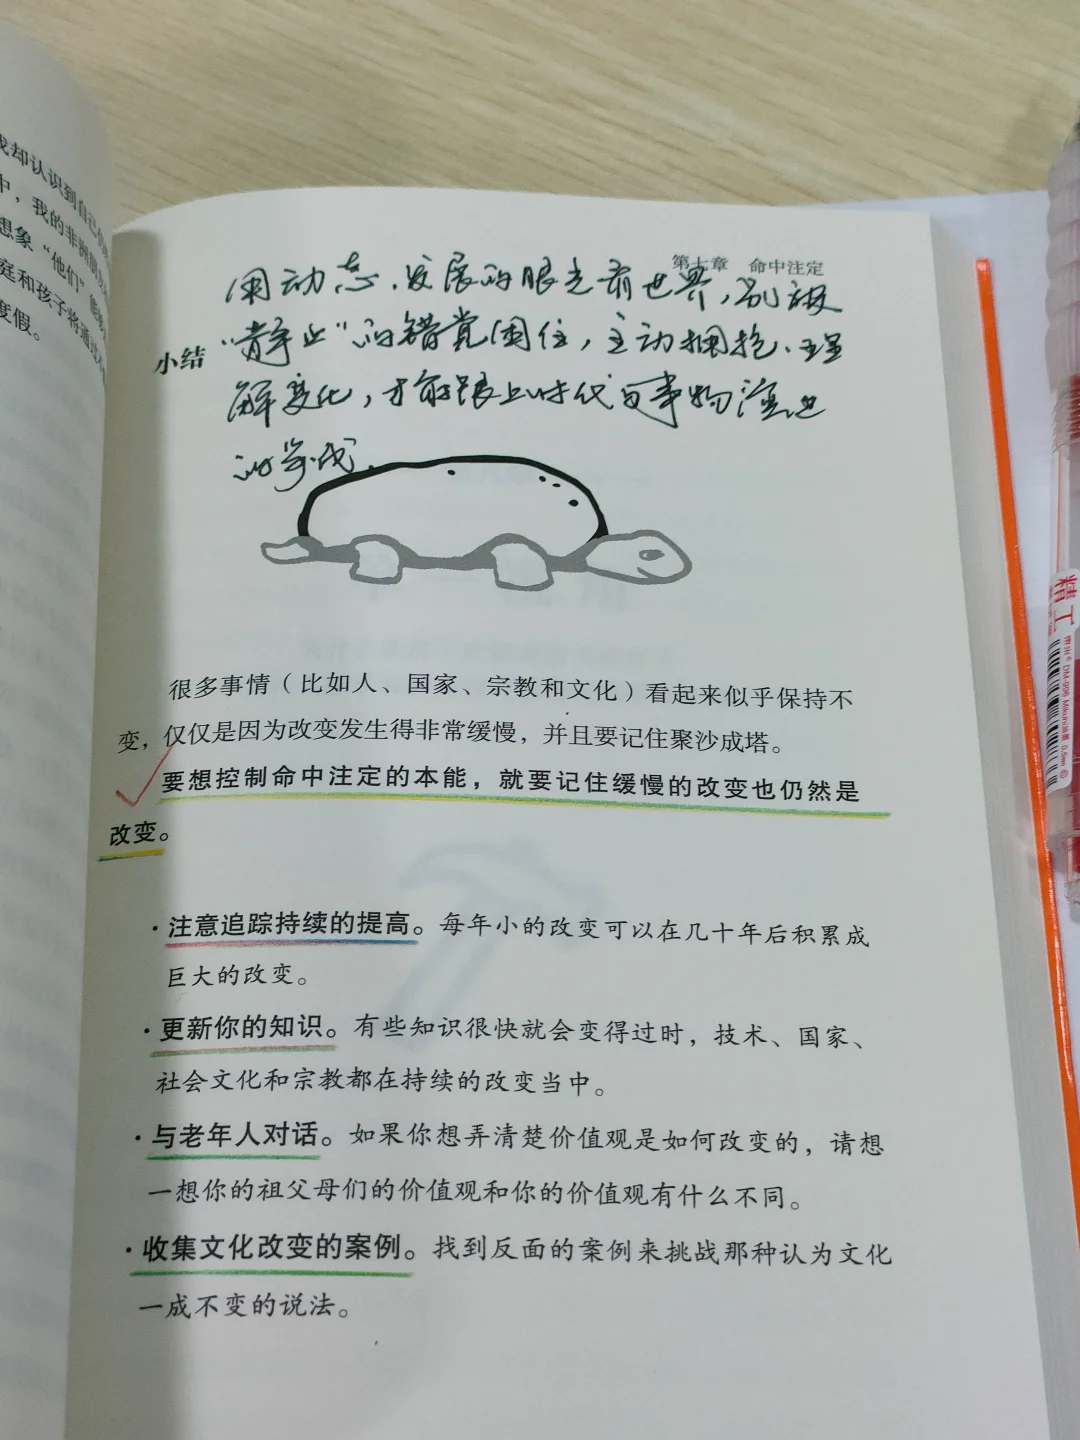 我却认识到自己
中，我的非洲朋友
想象“他们”能
庭和孩子将通过
度假。
第七章 命中注定
用动态、发展的眼光看世界，别被
小结
“静止”的错觉困住，主动拥抱、理
解变化，才能跟上时代与事物演进
的步伐。
很多事情（比如人、国家、宗教和文化）看起来似乎保持不
变，仅仅是因为改变发生得非常缓慢，并且要记住聚沙成塔。
要想控制命中注定的本能，就要记住缓慢的改变也仍然是
改变。
·注意追踪持续的提高。每年小的改变可以在几十年后积累成
巨大的改变。
·更新你的知识。有些知识很快就会变得过时，技术、国家、
社会文化和宗教都在持续的改变当中。
·与老年人对话。如果你想弄清楚价值观是如何改变的，请想
一想你的祖父母们的价值观和你的价值观有什么不同。
·收集文化改变的案例。找到反面的案例来挑战那种认为文化
一成不变的说法。
精工